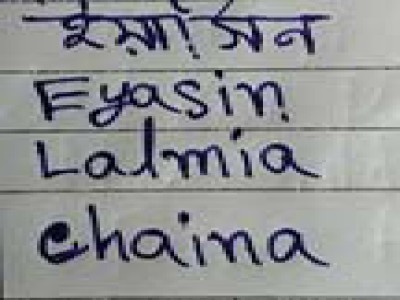 ইয়াসিন
Eyasin
Lalmia
Chaina